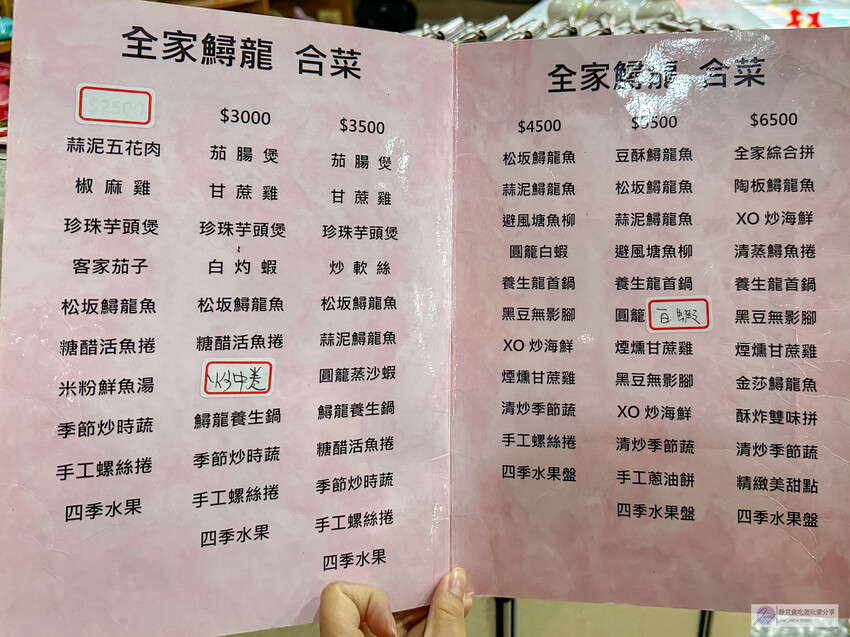 全家鱘龍 合菜
$2500
蒜泥五花肉
椒麻雞
珍珠芋頭煲
客家茄子
松坂鱘龍魚
糖醋活魚捲
米粉鮮魚湯
季節炒時蔬
手工螺絲捲
四季水果
$3000
茄腸煲
甘蔗雞
珍珠芋頭煲
白灼蝦
松坂鱘龍魚
糖醋活魚捲
炒中卷
鱘龍養生鍋
季節炒時蔬
手工螺絲捲
四季水果
$3500
茄腸煲
甘蔗雞
珍珠芋頭煲
炒軟絲
松坂鱘龍魚
蒜泥鱘龍魚
圓籠蒸沙蝦
鱘龍養生鍋
糖醋活魚捲
季節炒時蔬
手工螺絲捲
四季水果
全家鱘龍 合菜
$4500
松坂鱘龍魚
蒜泥鱘龍魚
避風塘魚柳
圓籠白蝦
養生龍首鍋
黑豆無影腳
XO 炒海鮮
煙燻甘蔗雞
清炒季節蔬
手工螺絲捲
四季水果盤
$5500
豆酥鱘龍魚
松坂鱘龍魚
蒜泥鱘龍魚
避風塘魚柳
養生龍首鍋
圓籠白蝦
煙燻甘蔗雞
黑豆無影腳
XO 炒海鮮
清炒季節蔬
手工蔥油餅
四季水果盤
$6500
全家綜合拼
陶板鱘龍魚
XO 炒海鮮
清蒸鱘魚捲
養生龍首鍋
黑豆無影腳
煙燻甘蔗雞
金莎鱘龍魚
酥炸雙味拼
清炒季節蔬
精緻美甜點
四季水果盤
靜兒貪吃遊玩愛分享